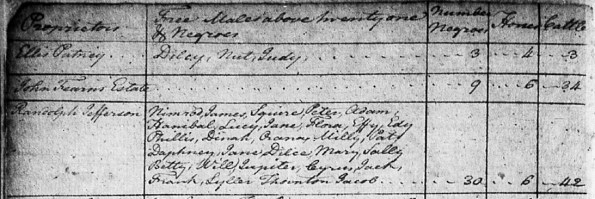 Proprietors Free Males above twenty one Number Horses Cattle
& Negroes Negroes
Ellis Putney Dilcy, Nut, Judy, 3 4 3
John Fearns Estate 9 6 34
Randolph Jefferson Nimrod, James, Squire, Peter, Adam,
Hanibal, Lucy, Jane, Flora, Effy, Edy
Phillis, Binah, Orana, Milly, Patt
Daphney, Jane, Dilce, Mary, Sally
Betty, Will, Jupiter, Cyrus, Jack,
Frank, Syller Thornton Jacob 30 6 42